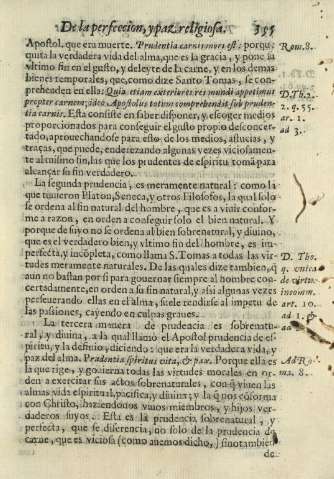 De la perfeccion, y paz religiosa. 355
Apostol, que era muerte. Prudentia carnis mors est: porque Rom. 8.
quita la verdadera vida del alma, que es la gracia, y pone su
vltimo fin en el gusto, y deleyte de la carne, y en los demas
bienes temporales, que, como dize Santo Tomas, se com-
prehenden en ellas: Quia etiam exteriores res mundi appetimus D. Th. 2.
propter carnem; ideo Apostolus totum comprehendit sub pruden- 2. q. 55.
tia carnis. Esta consiste en saber disponer, y escoger medios ar. 1.
proporcionados para conseguir el gusto propio desconcer- ad 3.
tado, aprouechandose para esso, de los medios, astucias, y
traças, que puede, endereçando algunas vezes viciosamen-
te al mismo fin, las que los prudentes de espiritu toma para
alcançar su fin verdadero.
La segunda prudencia, es meramente natural: como la
que tuuieron Platon, Seneca, y otros Filosofos, la qual solo
se ordena al fin natural del hombre, que es a viuir confor-
me a razon, en orden a conseguir solo el bien natural. Y
porque de suyo no se ordena al bien sobrenatural, y diuino,
que es el verdadero bien, y vltimo fin del hombre, es im-
perfecta, y incõpleta, como llama S. Tomas a todas las vir- D. Tho.
tudes meramente naturales. De las quales dize tambien, q̃ q. vnica
aun no bastan por si para gouernar siempre al hombre con- de virtu.
certadamente, en orden a su fin natural, y assi algunas vezes incomm.
perseuerando ellas en el alma, suele rendirse al impetu de art. 10.
las passiones, cayendo en culpas graues. ad 1.
La tercera manera de prudencia es sobrenatu-
ral, y diuina, a la qual llamò el Apostol prudencia de es-
piritu, y la definio, diciendo: que era la verdadera vida, y
paz del alma. Prudentia spiritus vita, & pax. Porque ella es Ad Ro-
la que rige, y gouierna todas las virtudes morales en or- ma. 8.
den a exercitar sus actos sobrenaturales, con q̃ viuen las
almas vida espiritual, pacifica, y diuina; y la q̃ nos cõforma
con Christo, haziendonos viuos miembros, y hijos ver-
daderos suyos. Esta es la prudencia sobrenatural, y
perfecta, que se diferencia, no solo de la prudencia de
carne, que es viciosa (como auemos dicho,) sino tambien
de